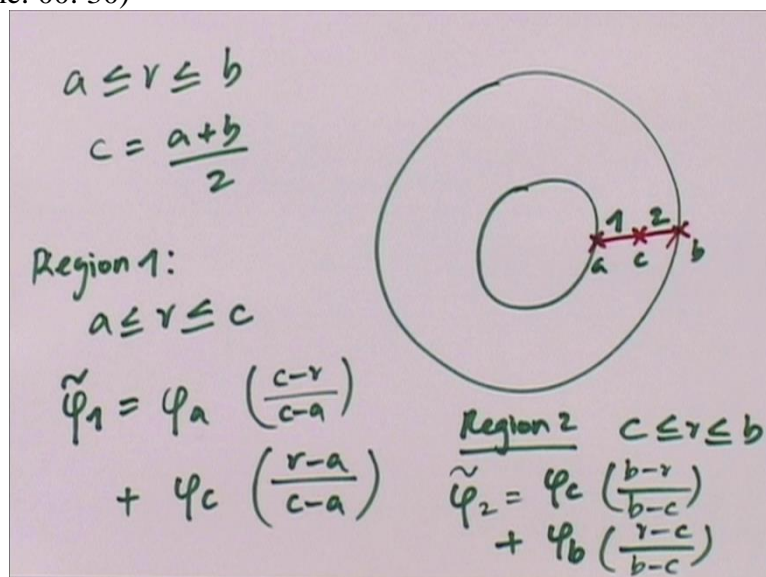 a ≤ r ≤ b
c = \frac{a+b}{2}
1 2
a c b
Region 1:
a ≤ r ≤ c
\tilde{φ}_1 = φ_a (\frac{c-r}{c-a})
+ φ_c (\frac{r-a}{c-a})
Region 2 c ≤ r ≤ b
\tilde{φ}_2 = φ_c (\frac{b-r}{b-c})
+ φ_b (\frac{r-c}{b-c})